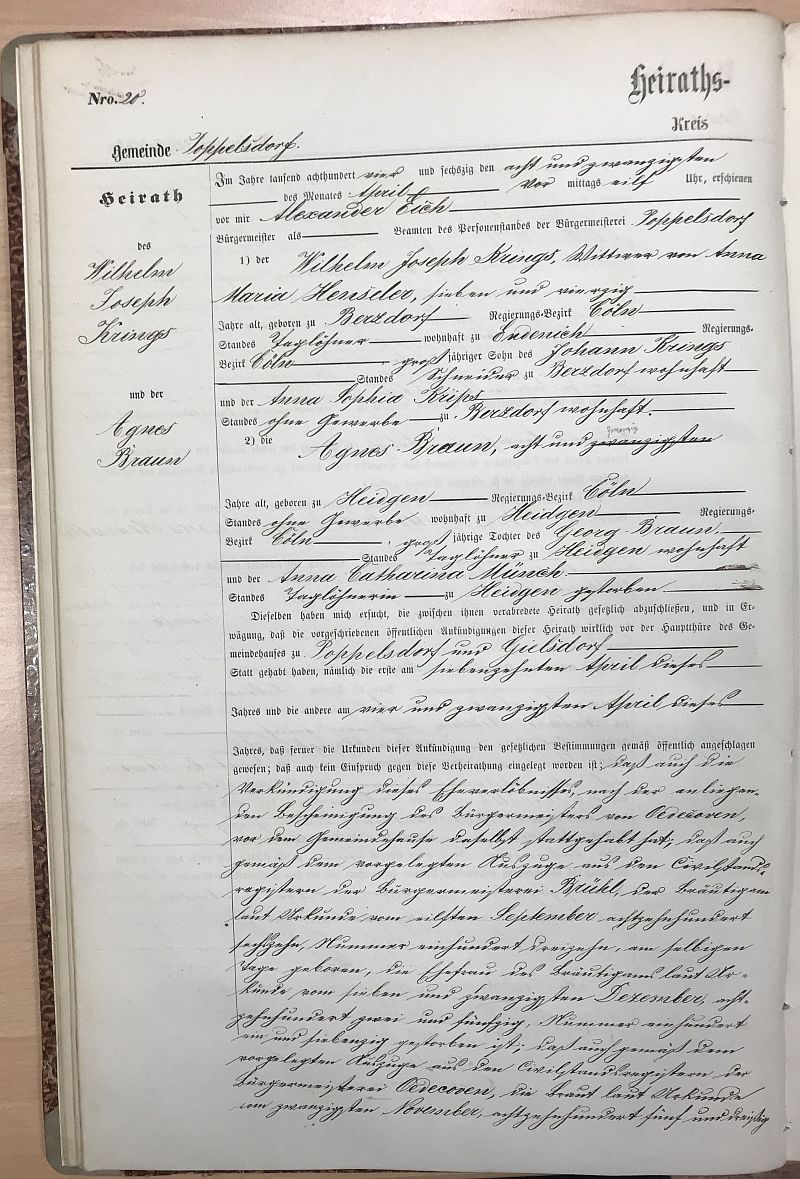 Nro. 20.
Heiraths-
Kreis
Gemeinde Poppelsdorf.
Heirath
des
Wilhelm
Joseph
Krings
und der
Agnes
Braun
Im Jahre tausend achthundert vier und sechszig den acht und zwanzigsten
des Monates April Vor mittags eilf Uhr, erschienen
vor mir Alexander Eich
Bürgermeister als Beamten des Personenstandes der Bürgermeisterei Poppelsdorf
1) der Wilhelm Joseph Krings, Wittwer von Anna
Maria Henseler, sieben und vierzig
Jahre alt, geboren zu Berzdorf Regierungs-Bezirk Cöln
Standes Taglöhner wohnhaft zu Endenich Regierungs-
Bezirk Cöln groß jähriger Sohn des Johann Krings
Standes Schneider zu Berzdorf wohnhaft
und der Anna Sophia Krips
Standes ohne Gewerbe zu Berzdorf wohnhaft.
2) die Agnes Braun, acht und zwanzigsten
zwanzig
Jahre alt, geboren zu Heidgen Regierungs-Bezirk Cöln
Standes ohne Gewerbe wohnhaft zu Heidgen Regierungs-
Bezirk Cöln, groß jährige Tochter des Georg Braun
Standes Taglöhner zu Heidgen wohnhaft
und der Anna Catharina Münch
Standes Taglöhnerin zu Heidgen gestorben
Dieselben haben mich ersucht, die zwischen ihnen verabredete Heirath gesetzlich abzuschließen, und in Er-
wägung, daß die vorgeschriebenen öffentlichen Ankündigungen dieser Heirath wirklich vor der Hauptthüre des Ge-
meindehauses zu Poppelsdorf und Gielsdorf
Statt gehabt haben, nämlich die erste am siebenzehnten April dieses
Jahres und die andere am vier und zwanzigsten April dieses
Jahres, daß ferner die Urkunden dieser Ankündigung den gesetzlichen Bestimmungen gemäß öffentlich angeschlagen
gewesen; daß auch kein Einspruch gegen diese Verheirathung eingelegt worden ist; daß auch die
Verkündigung dieses Eheverlöbnisses, nach der anliegen-
den Bescheinigung des Bürgermeisters von Oedecoven,
vor dem Gemeindehause daselbst stattgehabt hat; daß auch
gemäß dem vorgelegten Auszuge aus den Civilstands-
registern der Bürgermeisterei Brühl, der Bräutigam
laut Urkunde vom eilften September achtzehnhundert
sechszehn, Nummer einhundert dreizehn, am selbigen
Tage geboren, die Ehefrau des Bräutigams laut Ur-
kunde vom sieben und zwanzigsten Dezember, acht-
zehnhundert zwei und fünfzig, Nummer einhundert
ein und siebenzig gestorben ist; daß auch gemäß dem
vorgelegten Auszuge aus den Civilstandsregistern der
Bürgermeisterei Oedecoven, die Braut laut Urkunde
vom zwanzigsten November, achtzehnhundert fünf und dreißig